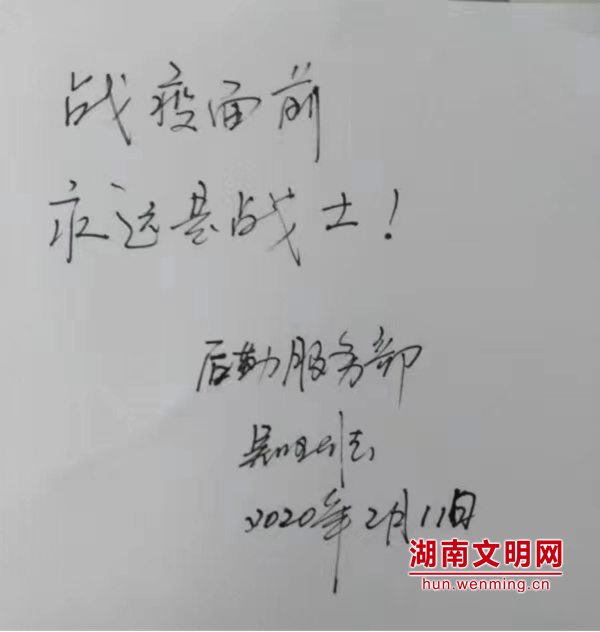 战疫面前
永远是战士!
后勤服务部
2020年2月11日
湖南文明网
hun.wenming.cn